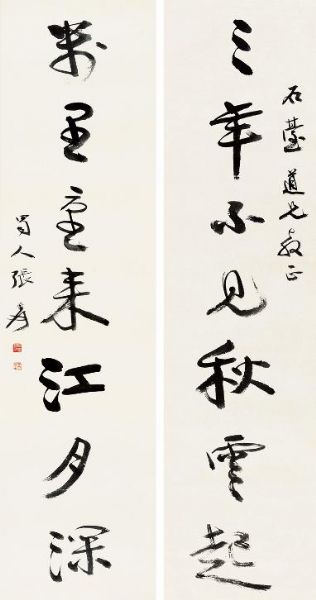 石臺道兄教正
三年不見秋雲起
萬里重来江月深
蜀人張爰